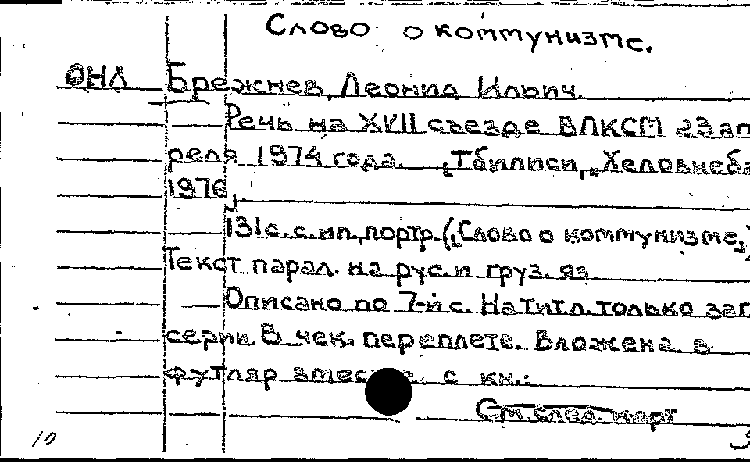 Слово о коммунизме.
ОНЛ Брежнев, Леонид Ильич.
Речь на XVII съезде ВЛКСМ 23 ап
реля 1974 года. Тбилиси, „Хеловнеба
1976,
131с. с ил., портр. („Слово о коммунизме„)
Текст парал. на рус. и груз. яз.
Описано по 7-й с. На тит. л. только заг
серии. В чек. переплете. Вложена в
футляр вместе с кн.:
См. след. карт
10